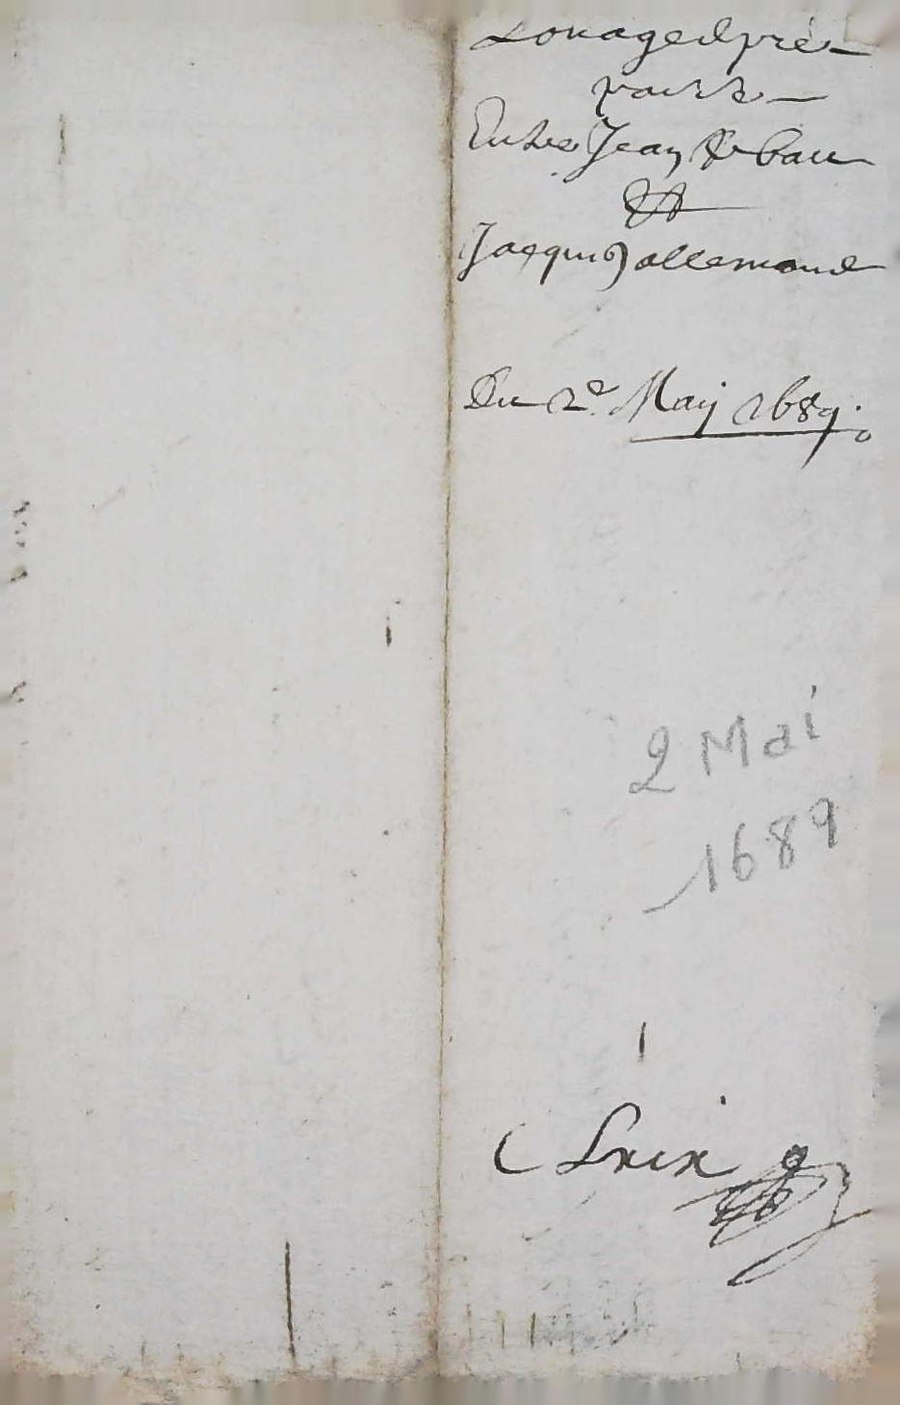 Louage de pré
passé
Entre Jean
Et
Jacques allemand
Du 2e May 1689.
2 Mai
1689